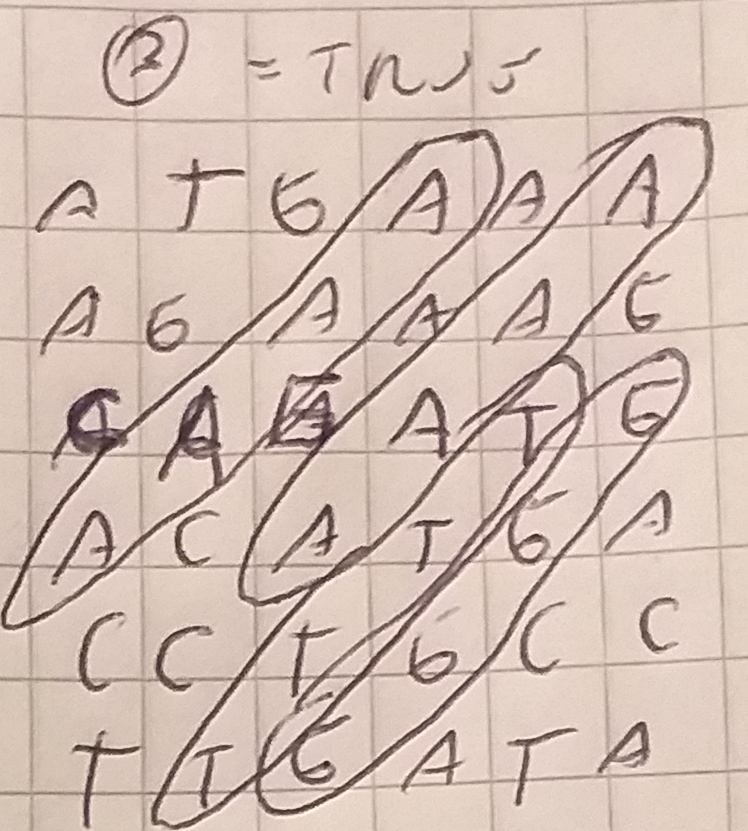 ② = TRUE
A T G A A A
A G A A A G
C A A A T G
A C A T G A
C C T G C C
T T G A T A